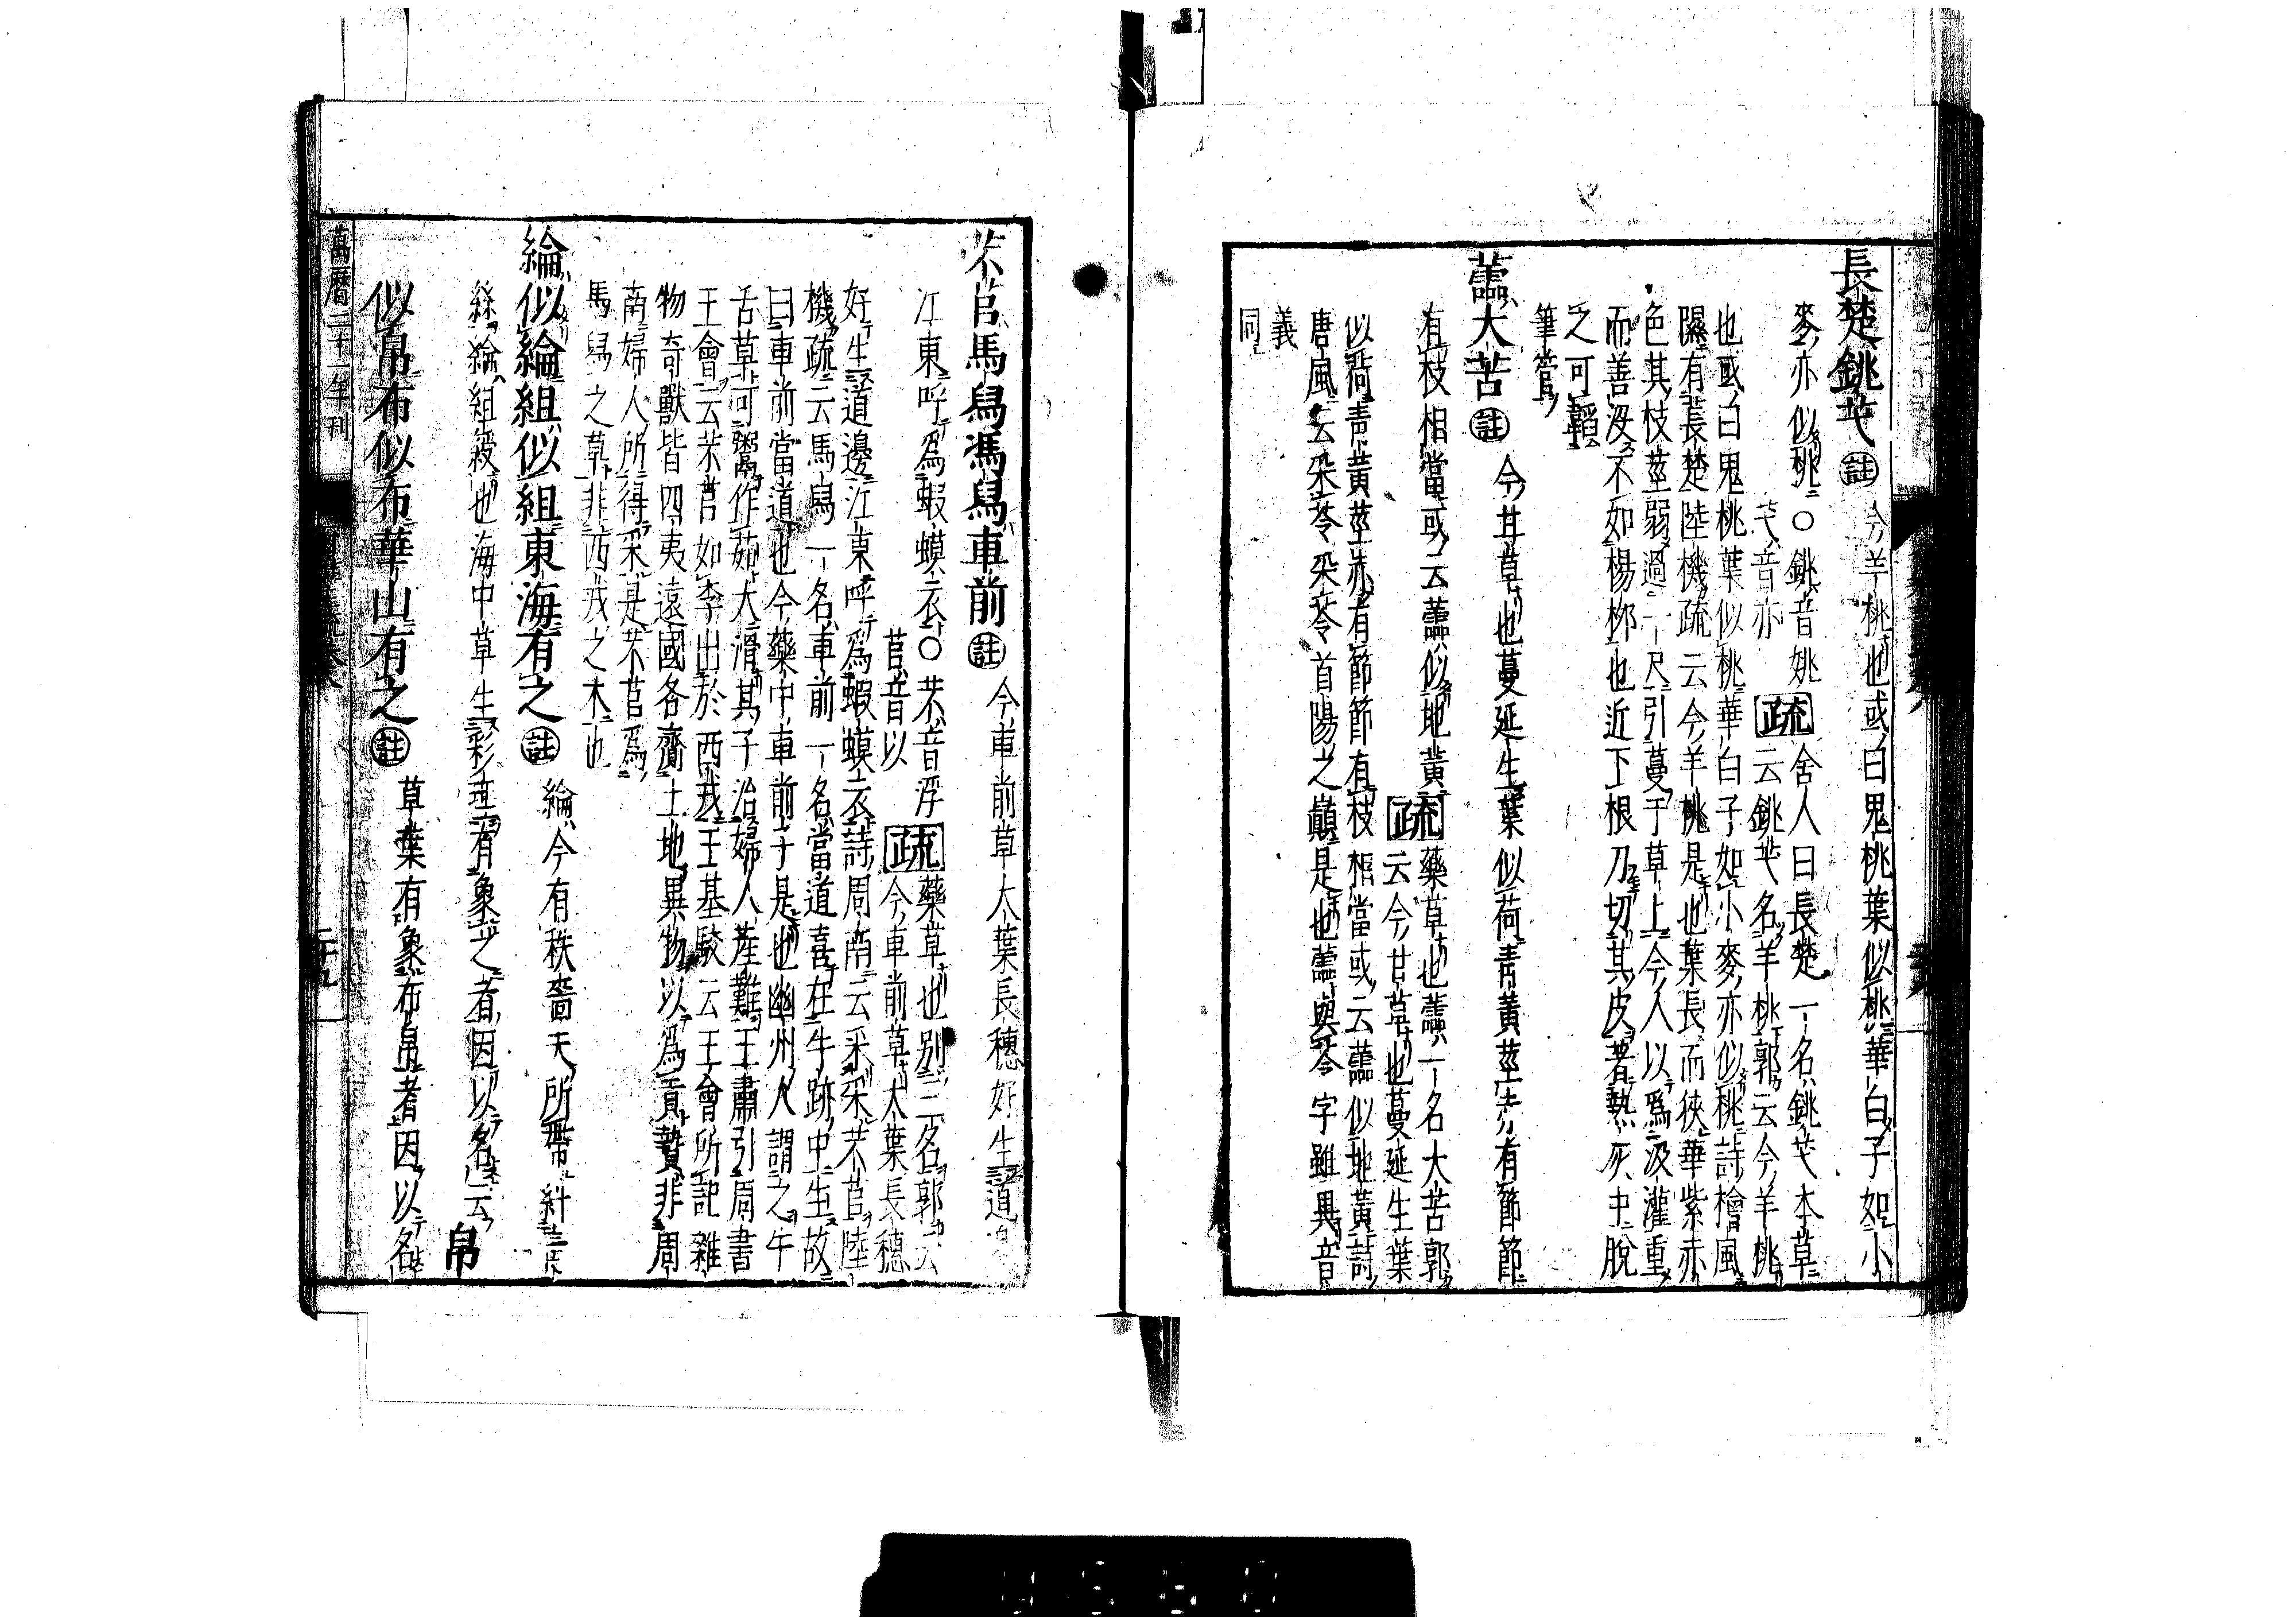 長楚銚芅註今羊桃也或曰鬼桃葉似桃華白子如小
麥亦似桃○銚音姚
芅音亦
疏舍人曰長楚一名銚芅本草
云銚芅名羊桃郭云今羊桃
也或曰鬼桃葉似桃華白子如小麥亦似桃詩檜風
隰有萇楚陸機疏云今羊桃是也葉長而狹華紫赤
色其枝莖弱過一尺引蔓于草上今人以爲汲灌重
而善沒不如楊柳也近下根刀切其皮著熱灰中脫
之可韜
筆管
蘦大苦註今甘草也蔓延生葉似荷青黃莖赤有節節
有枝相當或云蘦似地黃
疏藥草也蘦一名大苦郭
云今甘草也蔓延生葉
似荷青黃莖赤有節節有枝相當或云蘦似地黃詩
唐風云采苓采苓首陽之巔是也蘦與苓字雖異音
義
同
芣苢馬舄馬舄車前註今車前草大葉長穗好生道
江東呼爲蝦蟆衣○芣音浮
苢音以
疏藥草也別三名郭云
今車前草大葉長穗
好生道邊江東呼爲蝦蟆衣詩周南云采采芣苢陸
機疏云馬舄一名車前一名當道喜在牛跡中生故
曰車前當道也今藥中車前子是也幽州人謂之牛
舌草可鬻作茹大滑其子治婦人產難王肅引周書
王會云芣苢如李出於西戎王基駮云王會所記雜
物奇獸皆四夷遠國各齎土地異物以爲貢贄非周
南婦人所得采是芣苢爲
馬舄之草非西戎之木也
綸似綸組似組東海有之註綸今有秩嗇夫所帶糾
絲綸組綬也海中草生彩理有象之者因以名云帛
似帛布似布華山有之註草葉有象布帛者因以名
萬曆二十一年刊